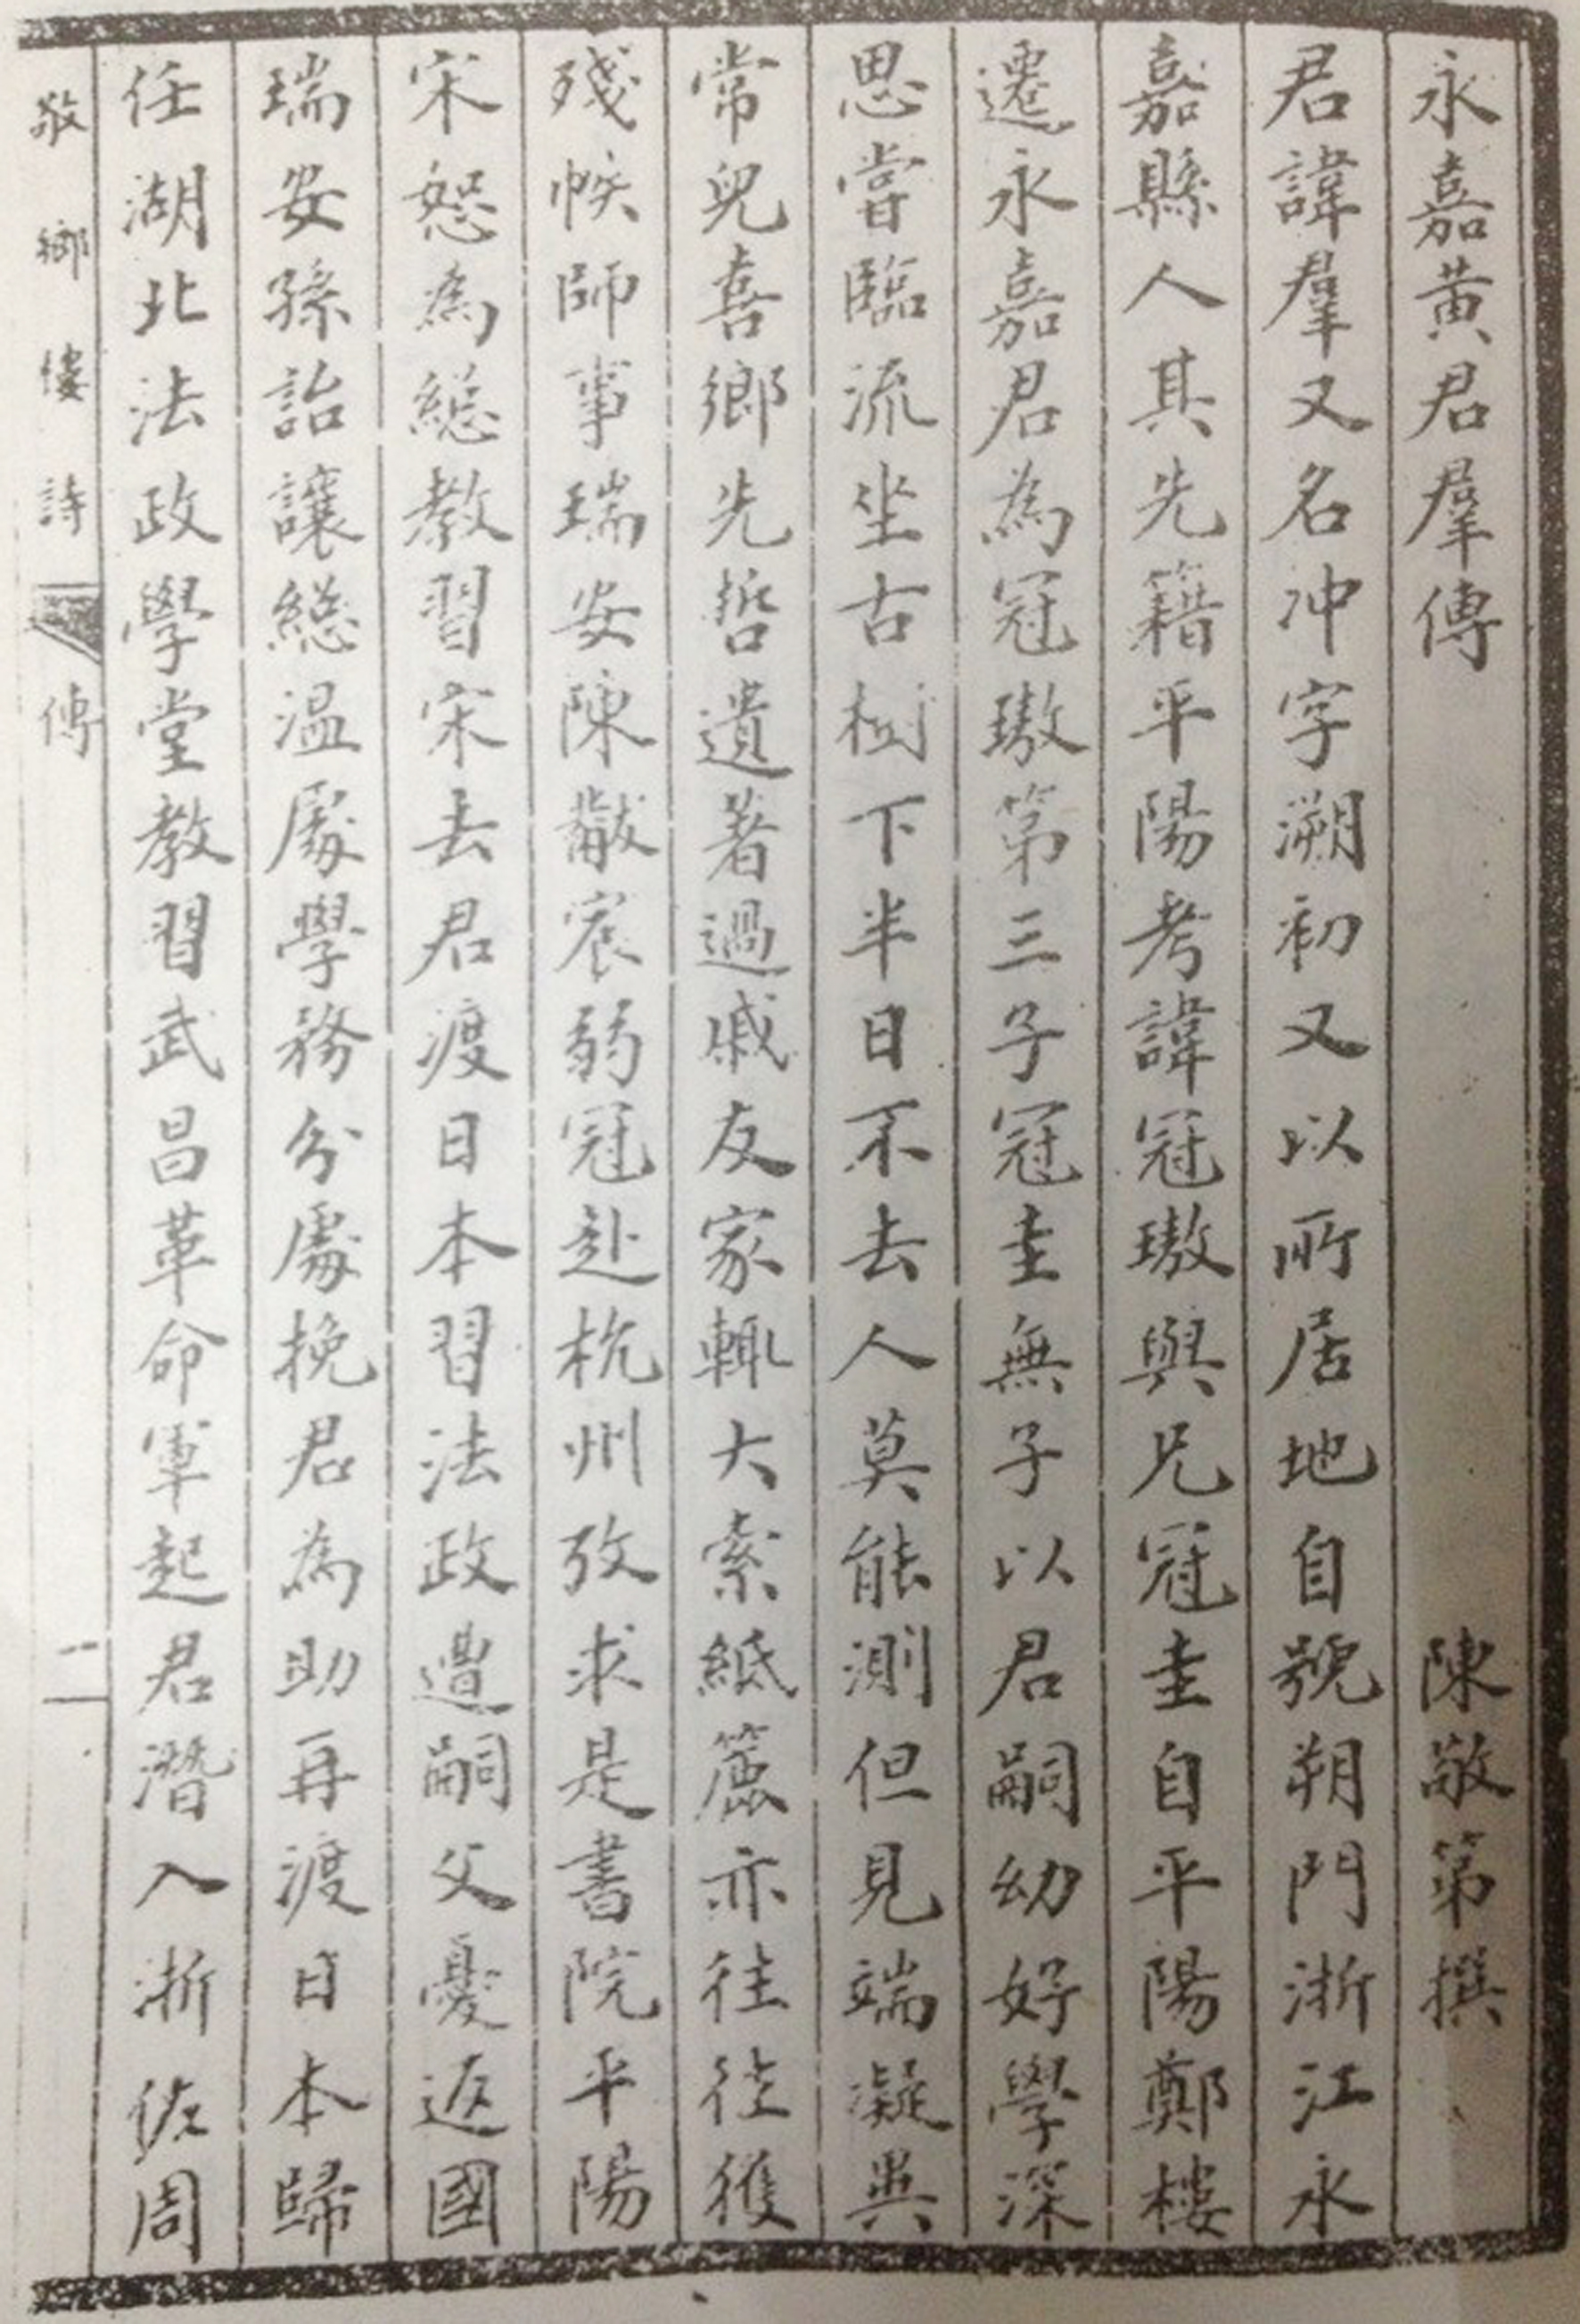 永嘉黄君羣傳　陳敬第撰
君諱羣又名冲字溯初又以所居地自號朔門浙江永
嘉縣人其先籍平陽考諱冠璈與兄冠圭自平陽鄭樓
遷永嘉君為冠璈第三子冠圭無子以君嗣幼好學深
思嘗臨流坐古樹下半日不去人莫能測但見端凝異
常兒喜鄉先哲遺著過戚友家輒大索紙簏亦往往獲
殘帙師事瑞安陳黻宸弱冠赴杭州攷求是書院平陽
宋恕為總教習宋去君渡日本習法政遭嗣父憂返國
瑞安孫詒讓總温處學務分處挽君為助再渡日本歸
任湖北法政學堂教習武昌革命軍起君潛入浙佐周
敬鄉樓詩　傳　二